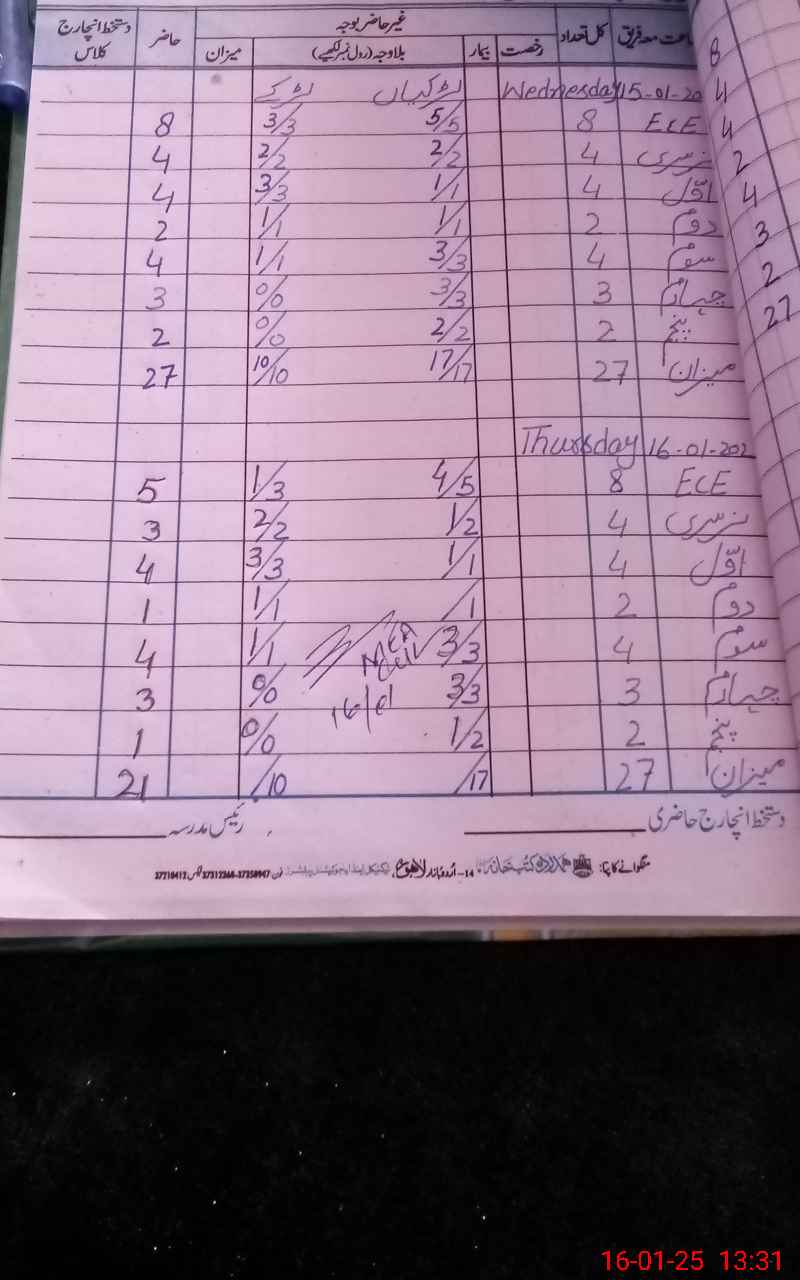 جماعت معہ فریق کل تعداد غیر حاضر بوجہ حاضر دستخط انچارج کلاس
رخصت بیمار بلاوجہ (رول نمبر لکھیے) میزان
Wednesday 15-01-20 لڑکیاں لڑکے
ECE 8 5/5 3/3 8
نرسری 4 2/2 2/2 4
اوّل 4 1/1 3/3 4
دوم 2 1/1 1/1 2
سوم 4 3/3 1/1 4
چہارم 3 3/3 0/0 3
پنجم 2 2/2 0/0 2
میزان 27 17/17 10/10 27
Thursday 16-01-202
ECE 8 4/5 1/3 5
نرسری 4 1/2 2/2 3
اوّل 4 1/1 3/3 4
دوم 2 /1 1/1 1
سوم 4 3/3 1/1 4
چہارم 3 3/3 0/0 3
پنجم 2 1/2 0/0 1
میزان 27 /17 /10 21
MEA
16/01
دستخط انچارج حاضری رئیس مدرسہ
منگوانے کا پتا: ہمدرد کتب خانہ 14-اُردو بازار لاہور فون 37312368-37358947 فیکس 37210412
8
4
4
2
4
3
2
27
16-01-25 13:31